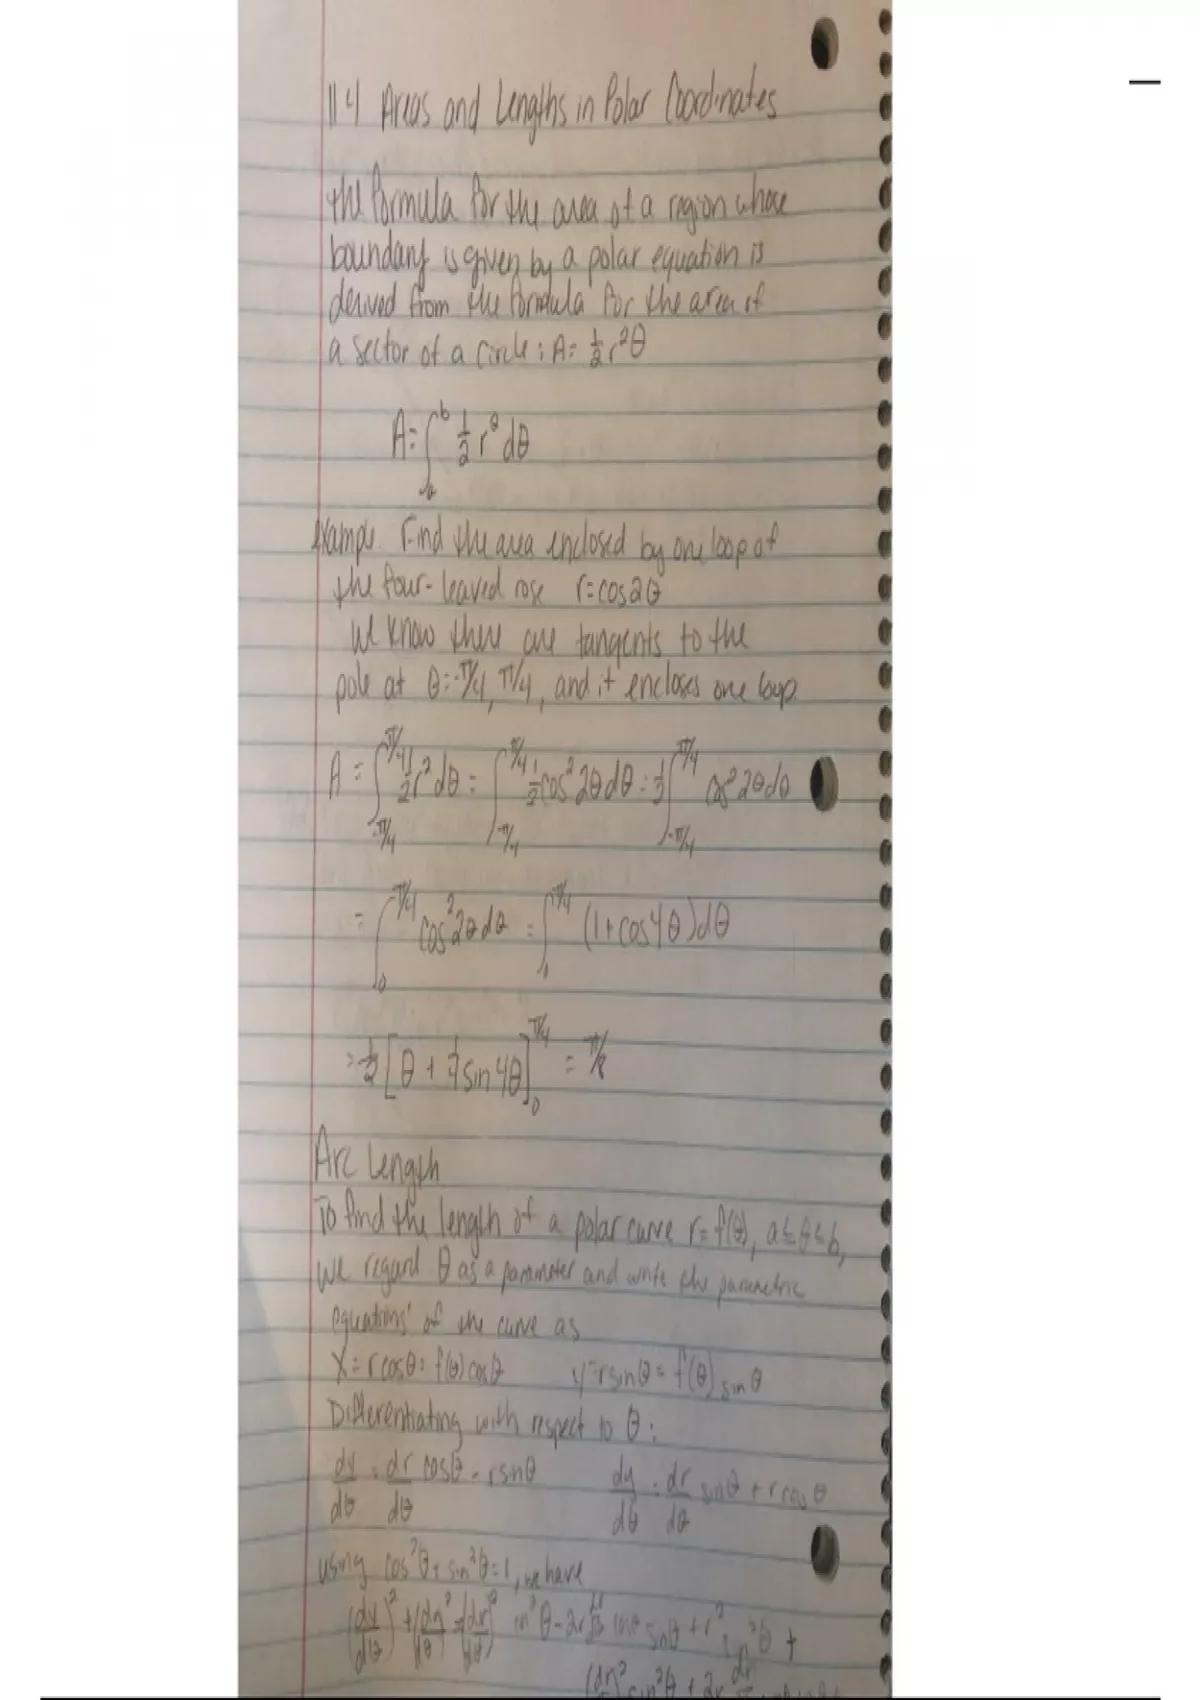 11.4 Areas and Lengths in Polar Coordinates
the formula for the area of a region whose
boundary is given by a polar equation is
derived from the formula for the area of
a sector of a circle: A = 1/2 r²θ
A = ∫_a^b 1/2 r² dθ
Example. Find the area enclosed by one loop of
the four-leaved rose r = cos2θ
We know there are tangents to the
pole at θ = -π/4, π/4, and it encloses one loop.
A = ∫_{-π/4}^{π/4} 1/2 r² dθ = ∫_{-π/4}^{π/4} 1/2 cos² 2θ dθ = 1/2 ∫_{-π/4}^{π/4} cos² 2θ dθ
= ∫_0^{π/4} cos² 2θ dθ = ∫^{π/4} (1 + cos4θ) dθ
= 1/2 [θ + 1/4 sin4θ]_0^{π/4} = π/8
Arc Length
To find the length of a polar curve r = f(θ), a ≤ θ ≤ b,
we regard θ as a parameter and write the parametric
equations of the curve as
X = r cosθ = f(θ) cosθ y = r sinθ = f(θ) sinθ
Differentiating with respect to θ:
/dθ = dr/dθ cosθ - r sinθ dy/dθ = dr/dθ sinθ + r cosθ
using cos²θ + sin²θ = 1, we have